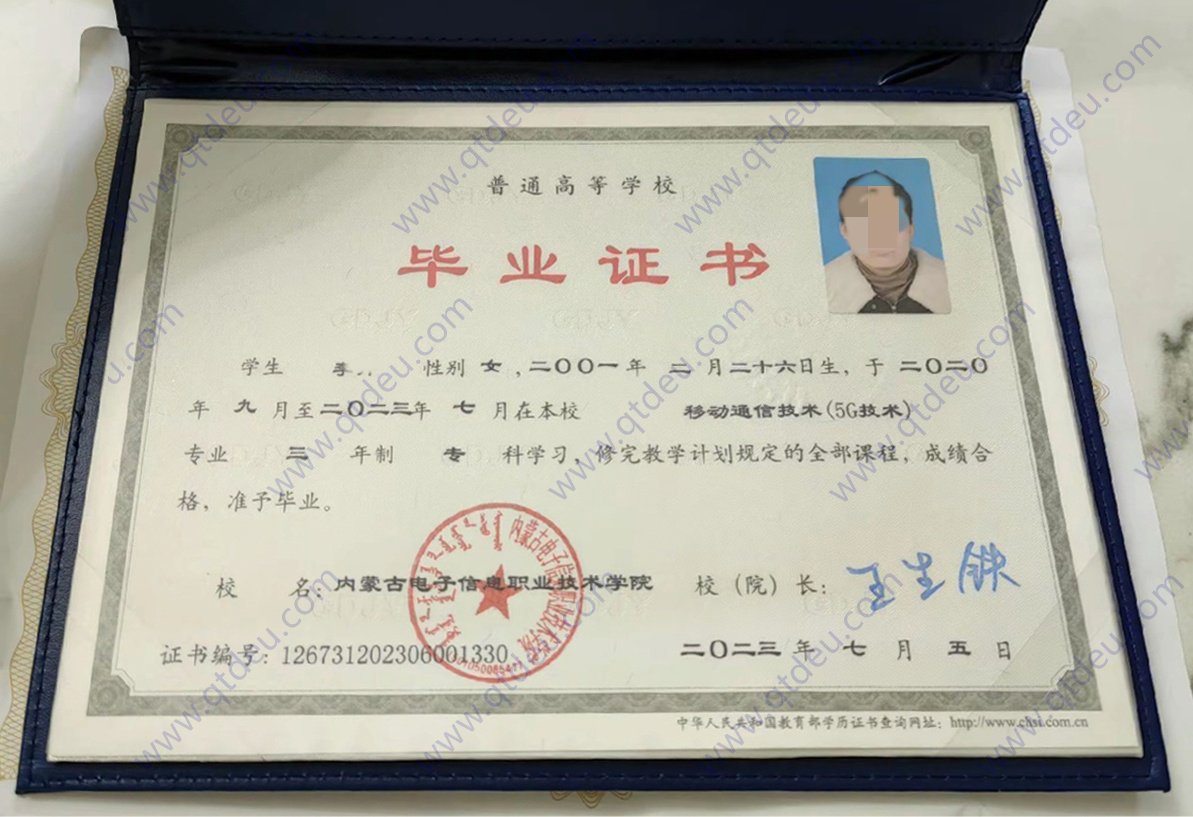 普通高等学校
毕业证书
学生 李 性别 女，二〇〇一年 二月二十六日生，于 二〇二〇
年 九 月至二〇二三年 七 月在本校 移动通信技术(5G技术)
专业 三 年制 专 科学习，修完教学计划规定的全部课程，成绩合
格，准予毕业。
校 名：内蒙古电子信息职业技术学院 校（院）长：王生铁
内蒙古电子信息职业技术学院
证书编号：126731202306001330 二〇二三 年 七 月 五 日
中华人民共和国教育部学历证书查询网址：http://www.chsi.com.cn
www.qtdeu.com